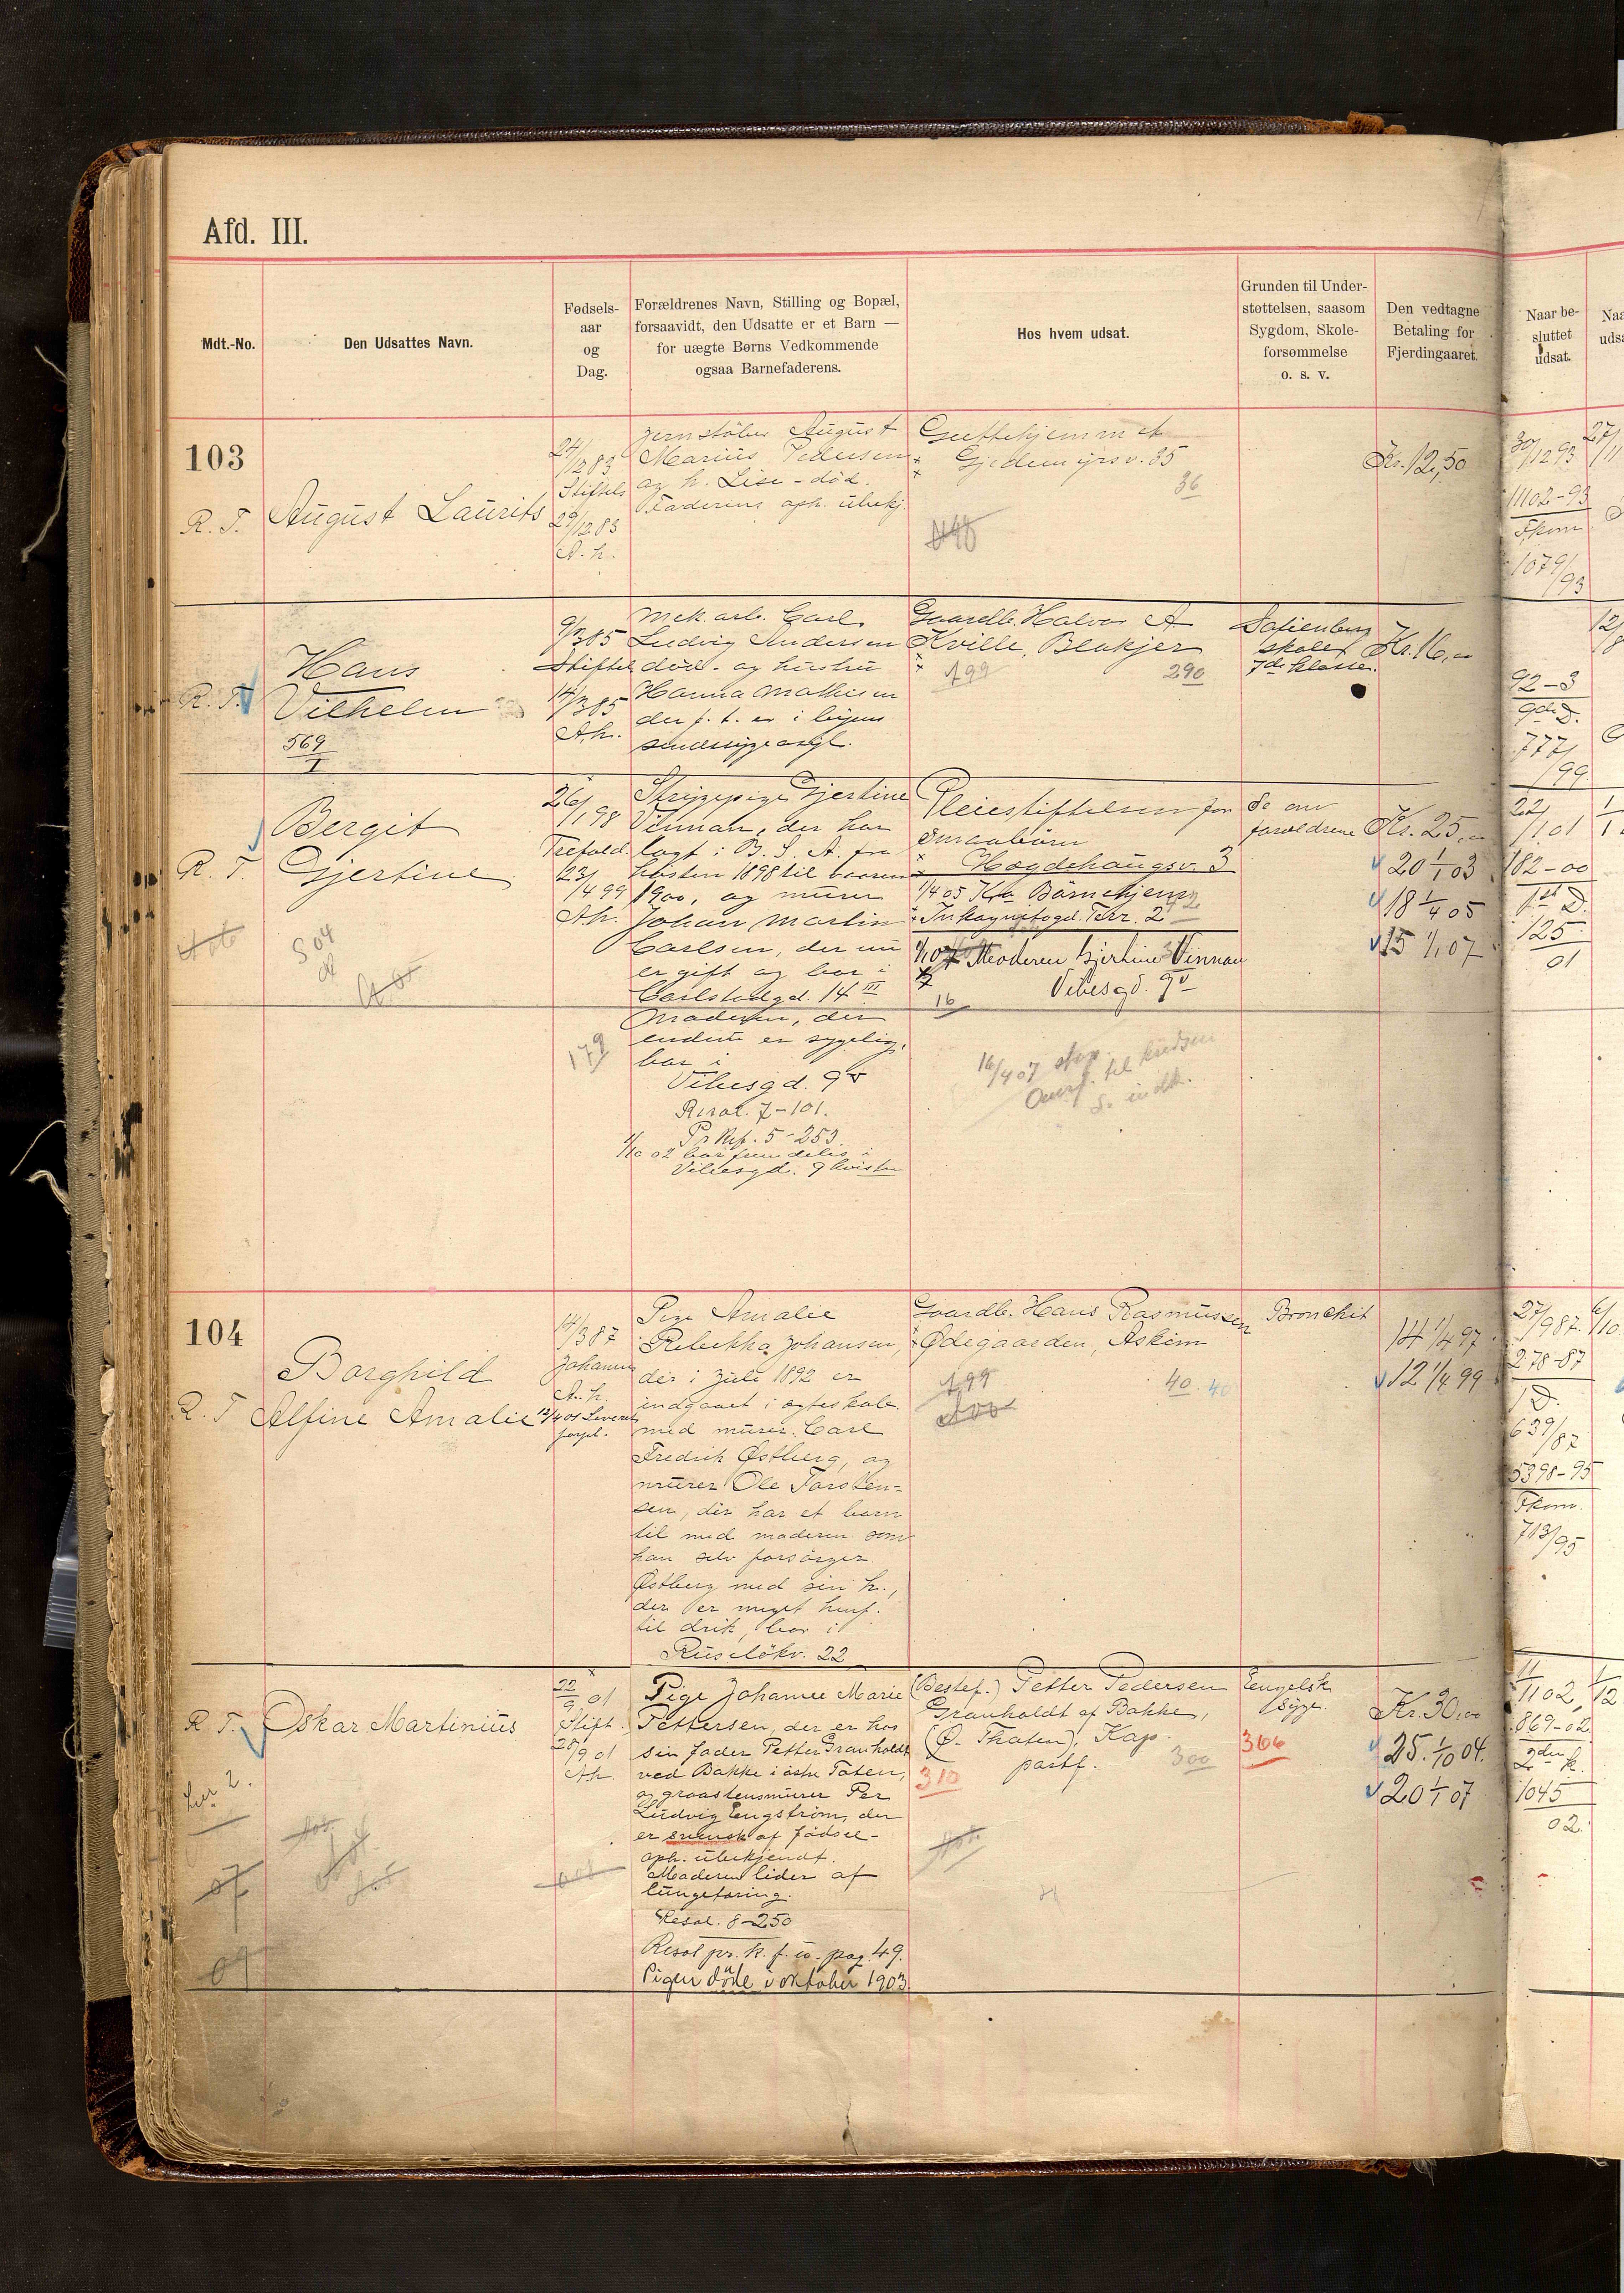 Afd. III.
Mdt.-No.
Den Udsattes Navn.
Fødsels-
aar
og
Dag.
Forældrenes Navn, Stilling og Bopæl,
forsaavidt, den Udsatte er et Barn —
for uægte Børns Vedkommende
ogsaa Barnefaderens.
Hos hvem udsat.
Grunden til Under-
støttelsen, saasom
Sygdom, Skole-
forsømmelse
o. s. v.
Den vedtagne
Betaling for
Fjerdingaaret.
Naar be-
sluttet
udsat.
103
R. T.
August Laurits
24/12 83
Stiftels
29/12 83
A. h.
Jernstøber August
Marius Pedersen
og h. Lise - død.
Faderens oph. ubekj.
Guttehjemmet
Gjedemyrsv. 35
36
Kr. 12,50
30/12 93
1102-93
Fkom
1079/93
R. T.
Hans
Vilhelm
569
I
9/3 85
Stiftel
14/3 85
A.h.
Mek. arb. Carl
Ludvig Andersen
død. og hustru
Hanna Mathisen
der f. t. er i byens
sindssygeasyl.
Gaardb. Halvor A
Kville, Blakjer
199
290
Sofienberg
skole
7de klasse.
Kr. 16,-
92-3
9de D.
777/99
R. T.
Bergit
Gjertine
26/1 98
Trefold.
23/4 99
A.h.
Strygepige Gjertine
Vinnan, der har
lagt i B. S. A. fra
høsten 1898 til vaaren
1900, og murer
Johan Martin
Carlsen, der nu
er gift og bor i
Carlstadgd. 14 III
Moderen, der
endnu er sygelig,
bor i
Vibesgd. 9 v
Resol. 7-101.
Pr Rep. 5-253.
1/10 02 bor fremdeles i
Vibesgd. 9 kvisten
179
Pleiestiftelsen for
smaabørn
Hægdehaugsv. 3
1/4 05 Kra Børnehjem
Inkognitogd. Terr. 2
1/1 07 Moderen Gjertine Vinnan
Vibesgd. 9 v
16
16/4 07 stop
Se om
forældrene
Kr. 25,-
20 1/1 03
18 1/4 05
15 1/1 07
22/1 01
182-00
1st D.
125
01
104
R. T
Borghild
Alfine Amalie
14/3 87
Johannes
A. h
12/4 01 Leveret
forpl.
Pige Amalie
Rebekka Johansen,
der i Juli 1892 er
indgaaet i ægteskab
med murer Carl
Fredrik Østberg, og
murer Ole Torsten-
sen, der har et barn
til med moderen som
han selv forsørger.
Østberg med sin h.,
der er meget henf.
til drik, bor i
Ruseløkv. 22
Gaardb. Hans Rasmussen
Ødegaarden, Askim
199
40. 40
Bronchit
14 1/4 97
12 1/4 99
27/9 87.
278-87
1 D.
639/87
5398-95
Fkom.
713/95
R T.
Oskar Martinius
22/9 01
Stift.
28/9 01
Ah
Pige Johanne Marie
Pettersen, der er hos
sin fader Petter Granholdt
ved Bakke i østre Toten,
og graastensmurer Per
Ludvig Engstrøm, der
er svensk af fødsel -
oph. ubekjendt.
Moderen lider af
lungetæring.
Resol. 8-250
Resol pr. k. f. u. pag. 49.
Pigen døde i oktober 1903.
(Bestef.) Petter Pedersen
Granholdt af Bakke,
(Ø. Thoten), Kap
postf.
300
310
Engelsk
syge
306
Kr. 30,00
25. 1/10 04.
20 1/1 07
11/11 02
869-02
2den k.
1045
02.